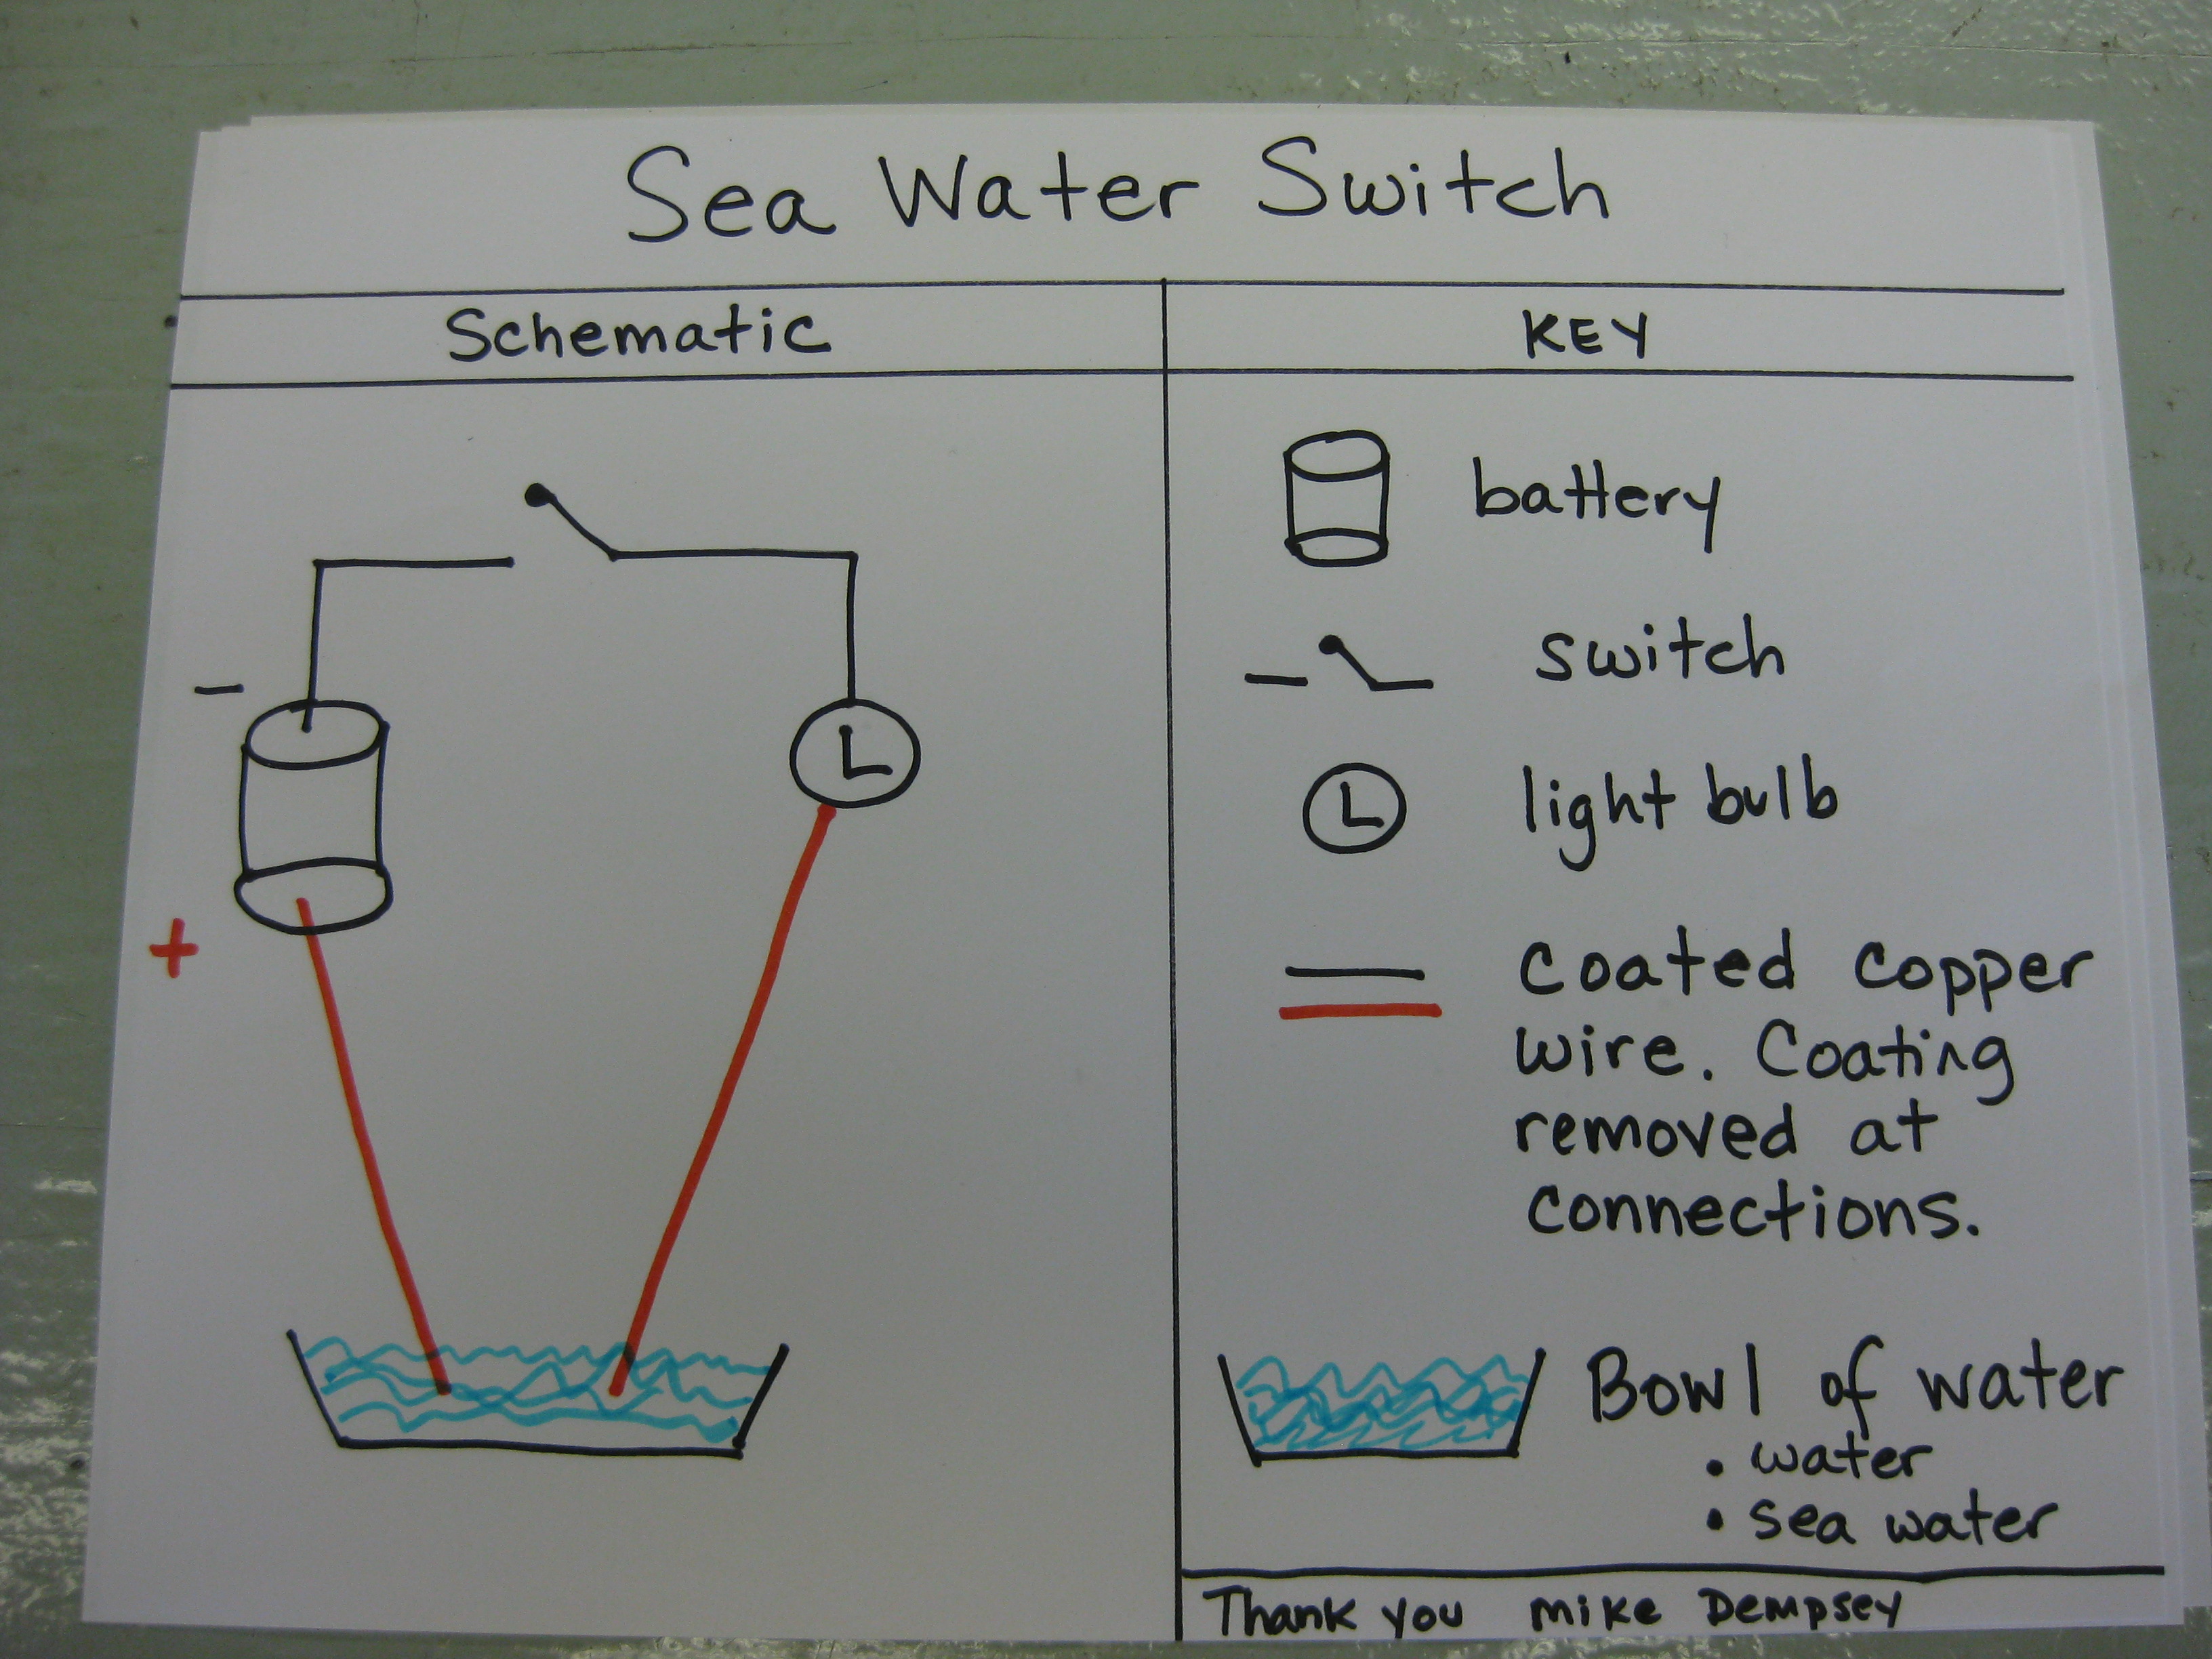 Sea Water Switch
Schematic
KEY
-
+
L
battery
switch
L
light bulb
Coated copper
wire. Coating
removed at
connections.
Bowl of water
• water
• sea water
Thank you Mike Dempsey